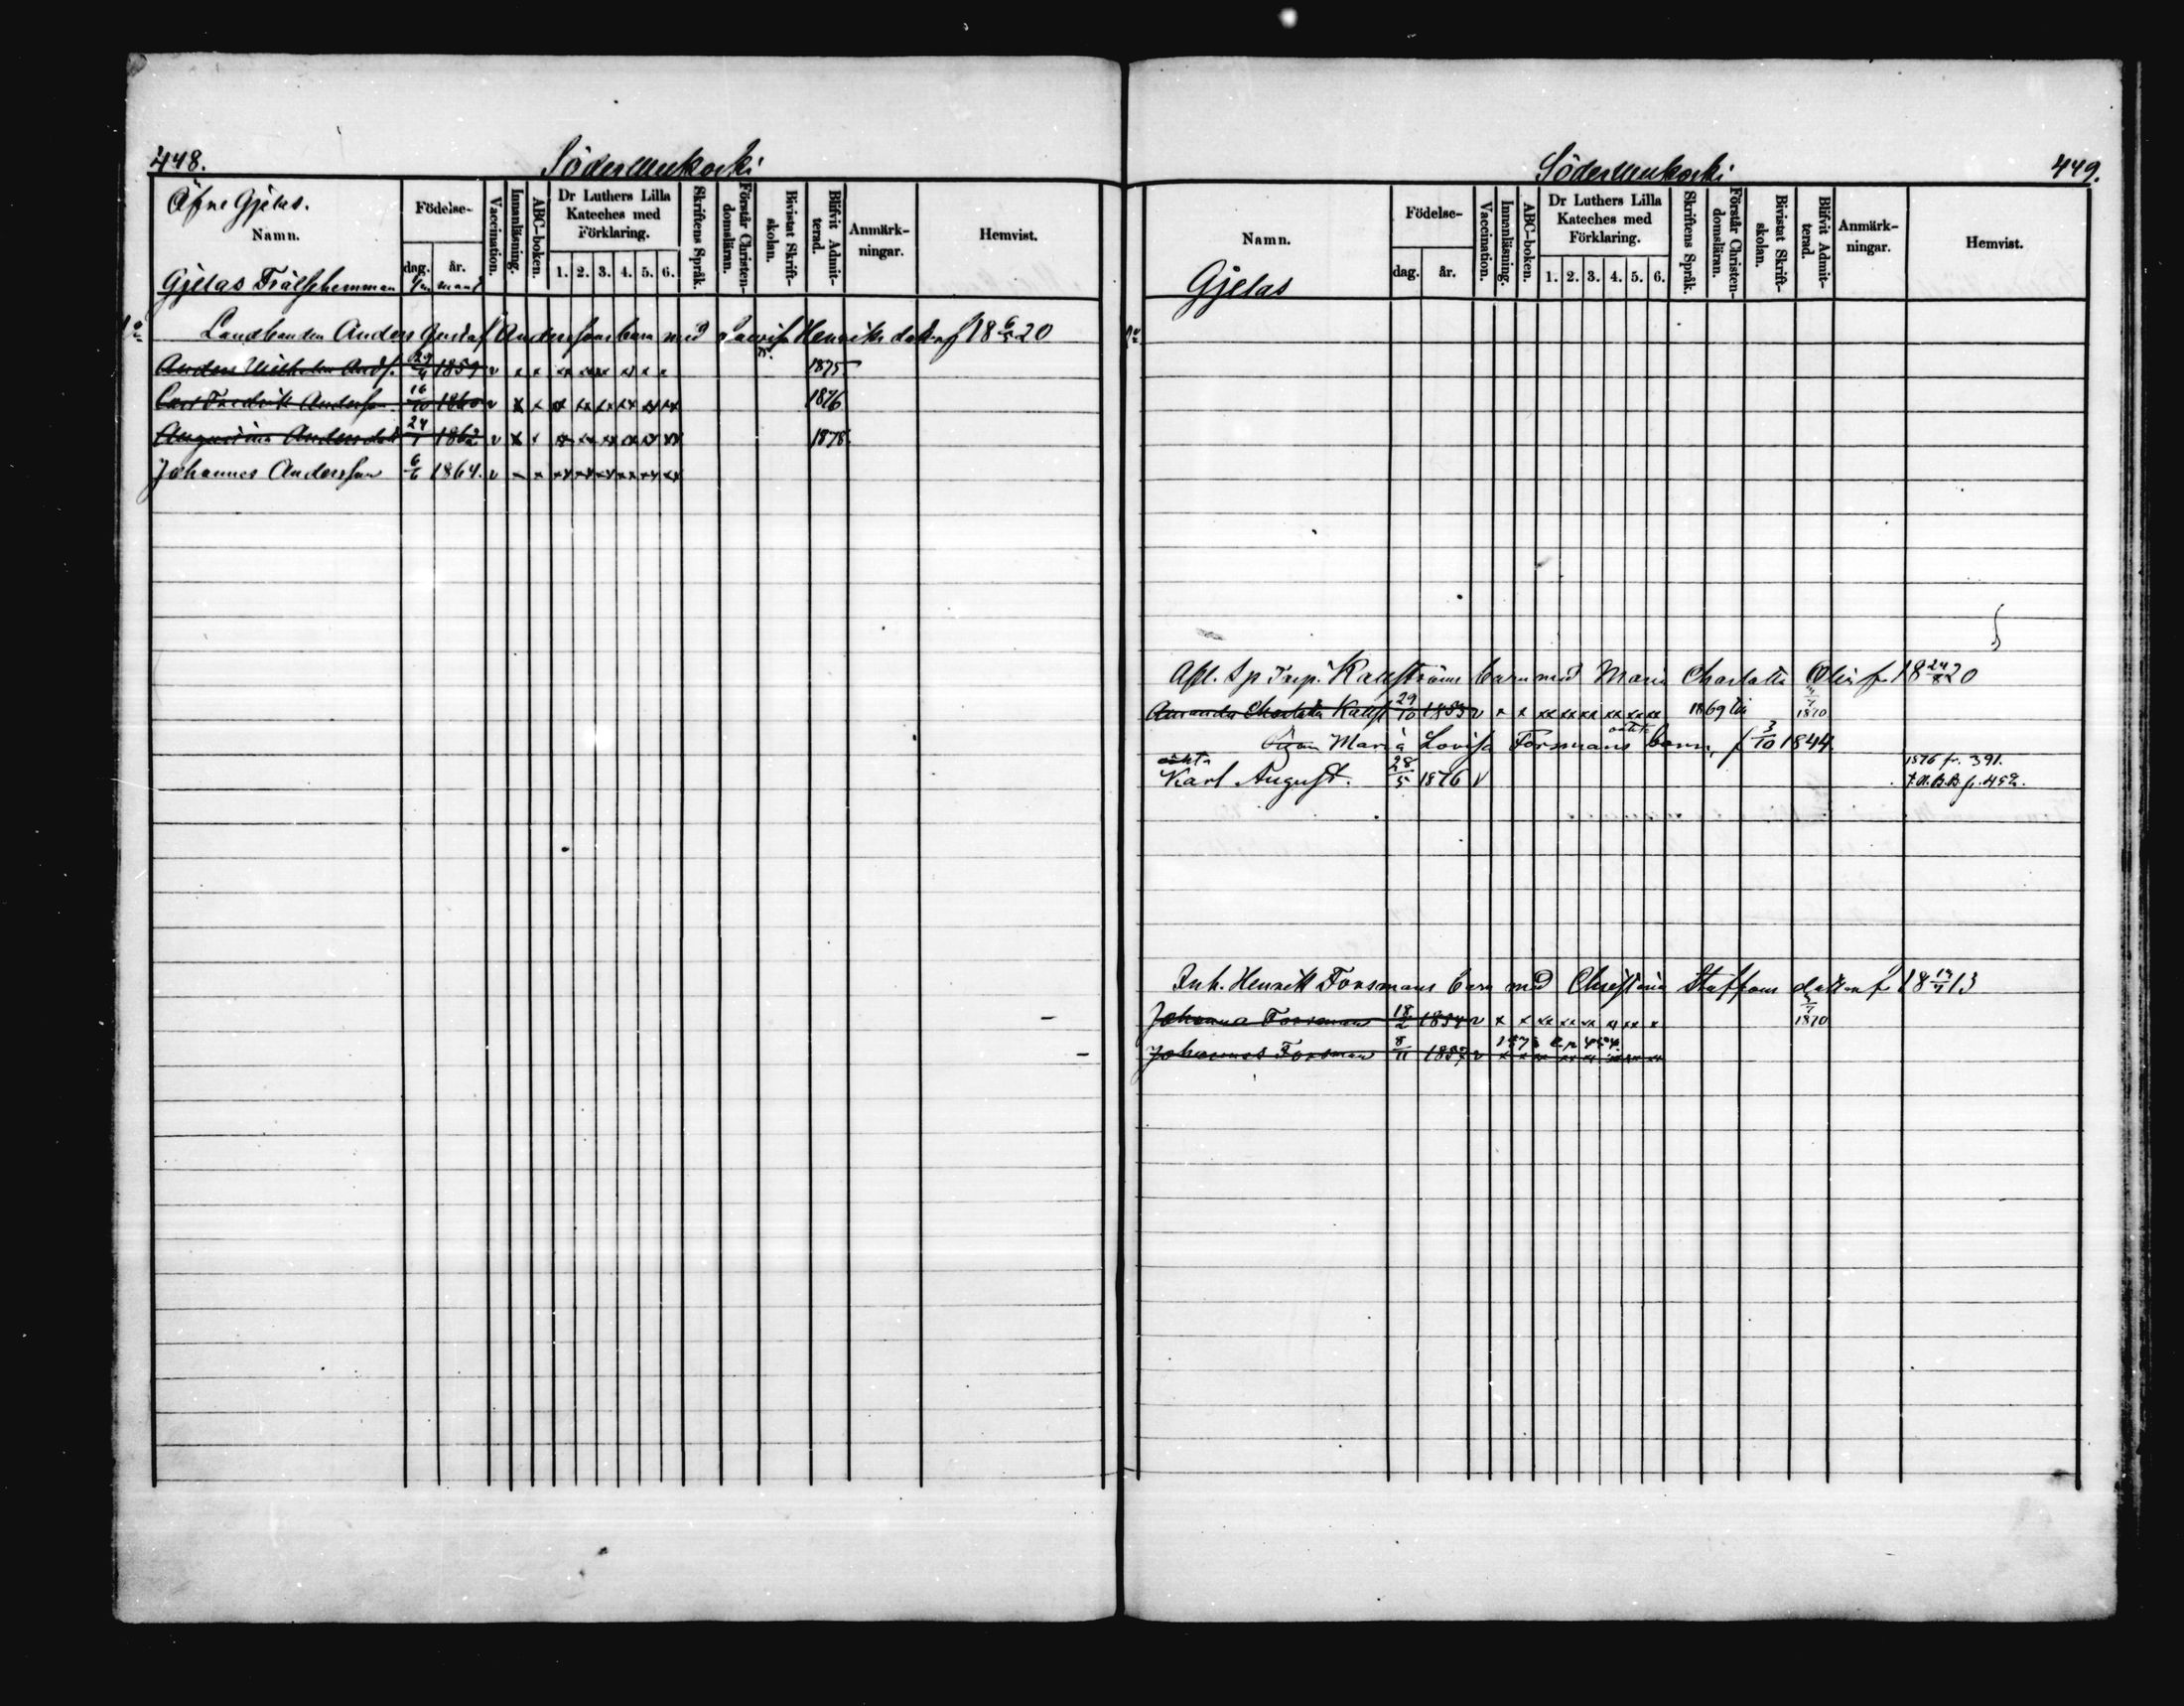 448.
Södermukoski
Öfre Gjelas.
Namn.
Födelse-
dag.
år.
Vaccination.
Innanläsning.
ABC-boken.
Dr Luthers Lilla
Kateches med
Förklaring.
1. 2. 3. 4. 5. 6.
Skriftens Språk.
Förstår Christen-
domsläran.
Bivistat Skrift-
skolan.
Blifvit Admit-
terad.
Anmärk-
ningar.
Hemvist.
Gjelas Frälsehemman
Landbonden Anders Gustaf Anderssons barn med Lovisa Henriksdotter f 18 6/5 20
Anders Wilhelm Andss. 29/4 1859 v x x xx xx xx xx x x 1875
Carl Fredrik Anderss. 16/10 1860 v x x xx xx xx xx xx xx 1876
Augustina Andersdotter 24/1 1862 v x x xx xx xx xx xx xx 1878
Johannes Andersson 6/6 1864. v x x xx xx xx xx xx xx
Södermukoski
449.
Namn.
Födelse-
dag.
år.
Vaccination.
Innanläsning.
ABC-boken.
Dr Luthers Lilla
Kateches med
Förklaring.
1. 2. 3. 4. 5. 6.
Skriftens Språk.
Förstår Christen-
domsläran.
Bivistat Skrift-
skolan.
Blifvit Admit-
terad.
Anmärk-
ningar.
Hemvist.
Gjelas
Afl. barn med Maria Charlotta f 18 24/ 20
Amanda Charlotta 29/10 1853 v x x xx xx xx xx xx xx 1869 1870
Maria Lovisa Forsmans oäkta barn, f 3/10 1844
oäkta
Karl August. 28/5 1876 v
1876 fr. 391.
Inh. Henrik Forsmans barn med Christina Staffansdotter f 18 /7 13
Johanna Forsman 18/2 1854 v x x xx xx xx xx xx x 1870
Johannes Forsman 8/11 1857 v x x xx xx xx xx xx xx